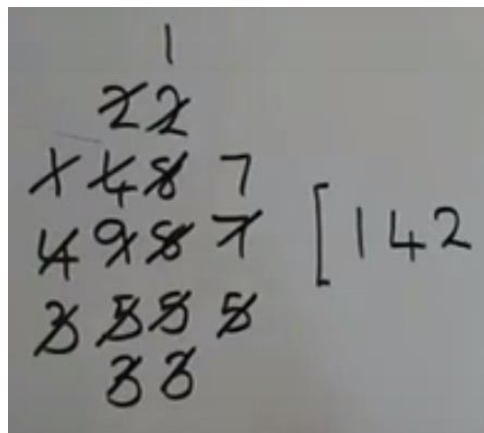 1
22
1487
4987 [142
3555
33